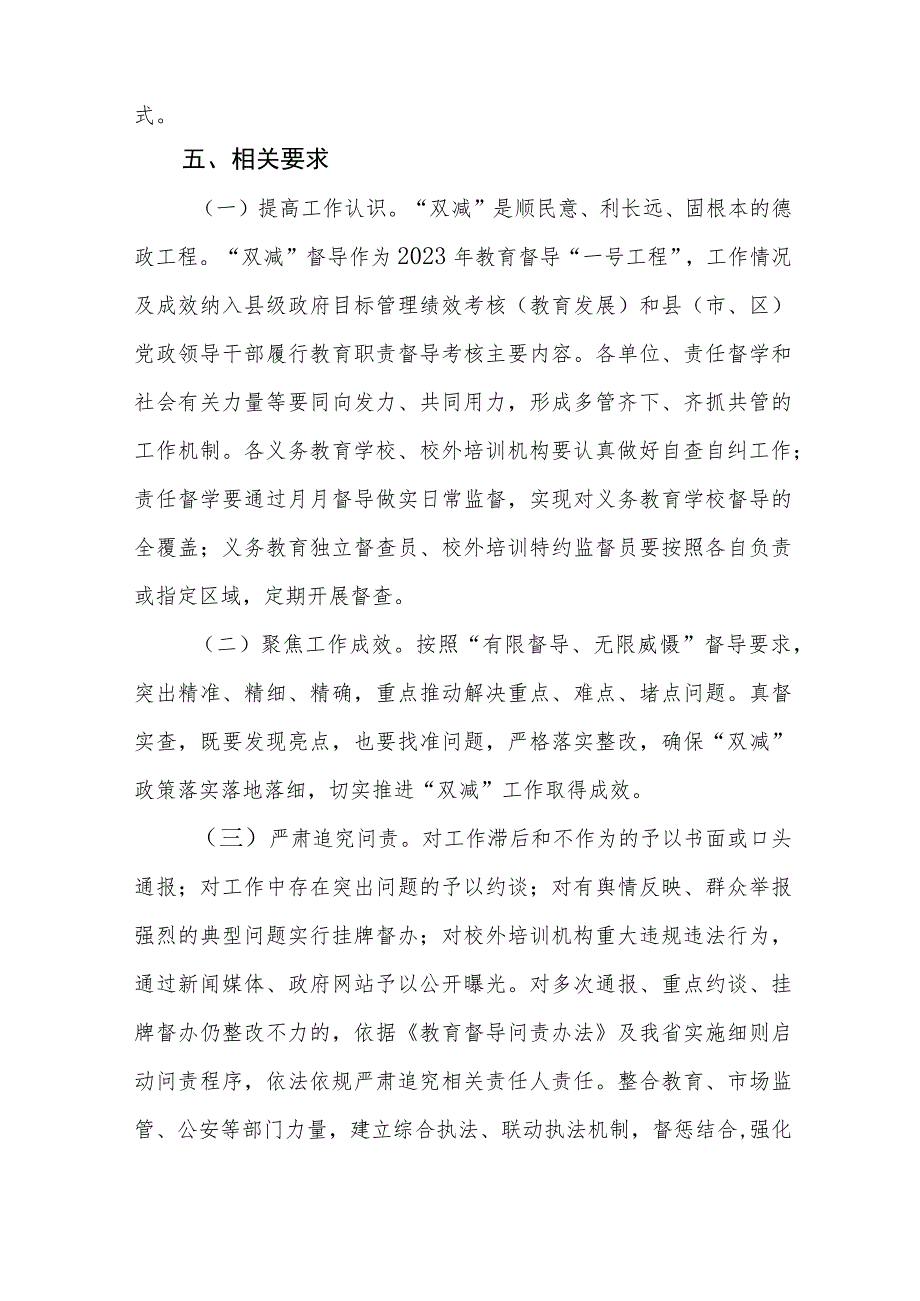 式。
五、相关要求
（一）提高工作认识。“双减”是顺民意、利长远、固根本的德
政工程。“双减”督导作为 2023 年教育督导“一号工程”，工作情况
及成效纳入县级政府目标管理绩效考核（教育发展）和县（市、区）
党政领导干部履行教育职责督导考核主要内容。各单位、责任督学和
社会有关力量等要同向发力、共同用力，形成多管齐下、齐抓共管的
工作机制。各义务教育学校、校外培训机构要认真做好自查自纠工作；
责任督学要通过月月督导做实日常监督，实现对义务教育学校督导的
全覆盖；义务教育独立督查员、校外培训特约监督员要按照各自负责
或指定区域，定期开展督查。
（二）聚焦工作成效。按照“有限督导、无限威慑”督导要求，
突出精准、精细、精确，重点推动解决重点、难点、堵点问题。真督
实查，既要发现亮点，也要找准问题，严格落实整改，确保“双减”
政策落实落地落细，切实推进“双减”工作取得成效。
（三）严肃追究问责。对工作滞后和不作为的予以书面或口头
通报；对工作中存在突出问题的予以约谈；对有舆情反映、群众举报
强烈的典型问题实行挂牌督办；对校外培训机构重大违规违法行为，
通过新闻媒体、政府网站予以公开曝光。对多次通报、重点约谈、挂
牌督办仍整改不力的，依据《教育督导问责办法》及我省实施细则启
动问责程序，依法依规严肃追究相关责任人责任。整合教育、市场监
管、公安等部门力量，建立综合执法、联动执法机制，督惩结合,强化